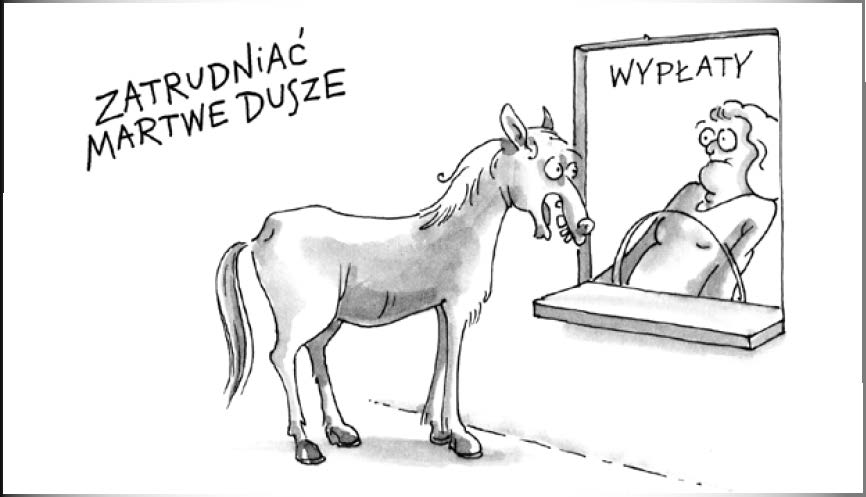 ZATRUDNIAĆ
MARTWE DUSZE
WYPŁATY